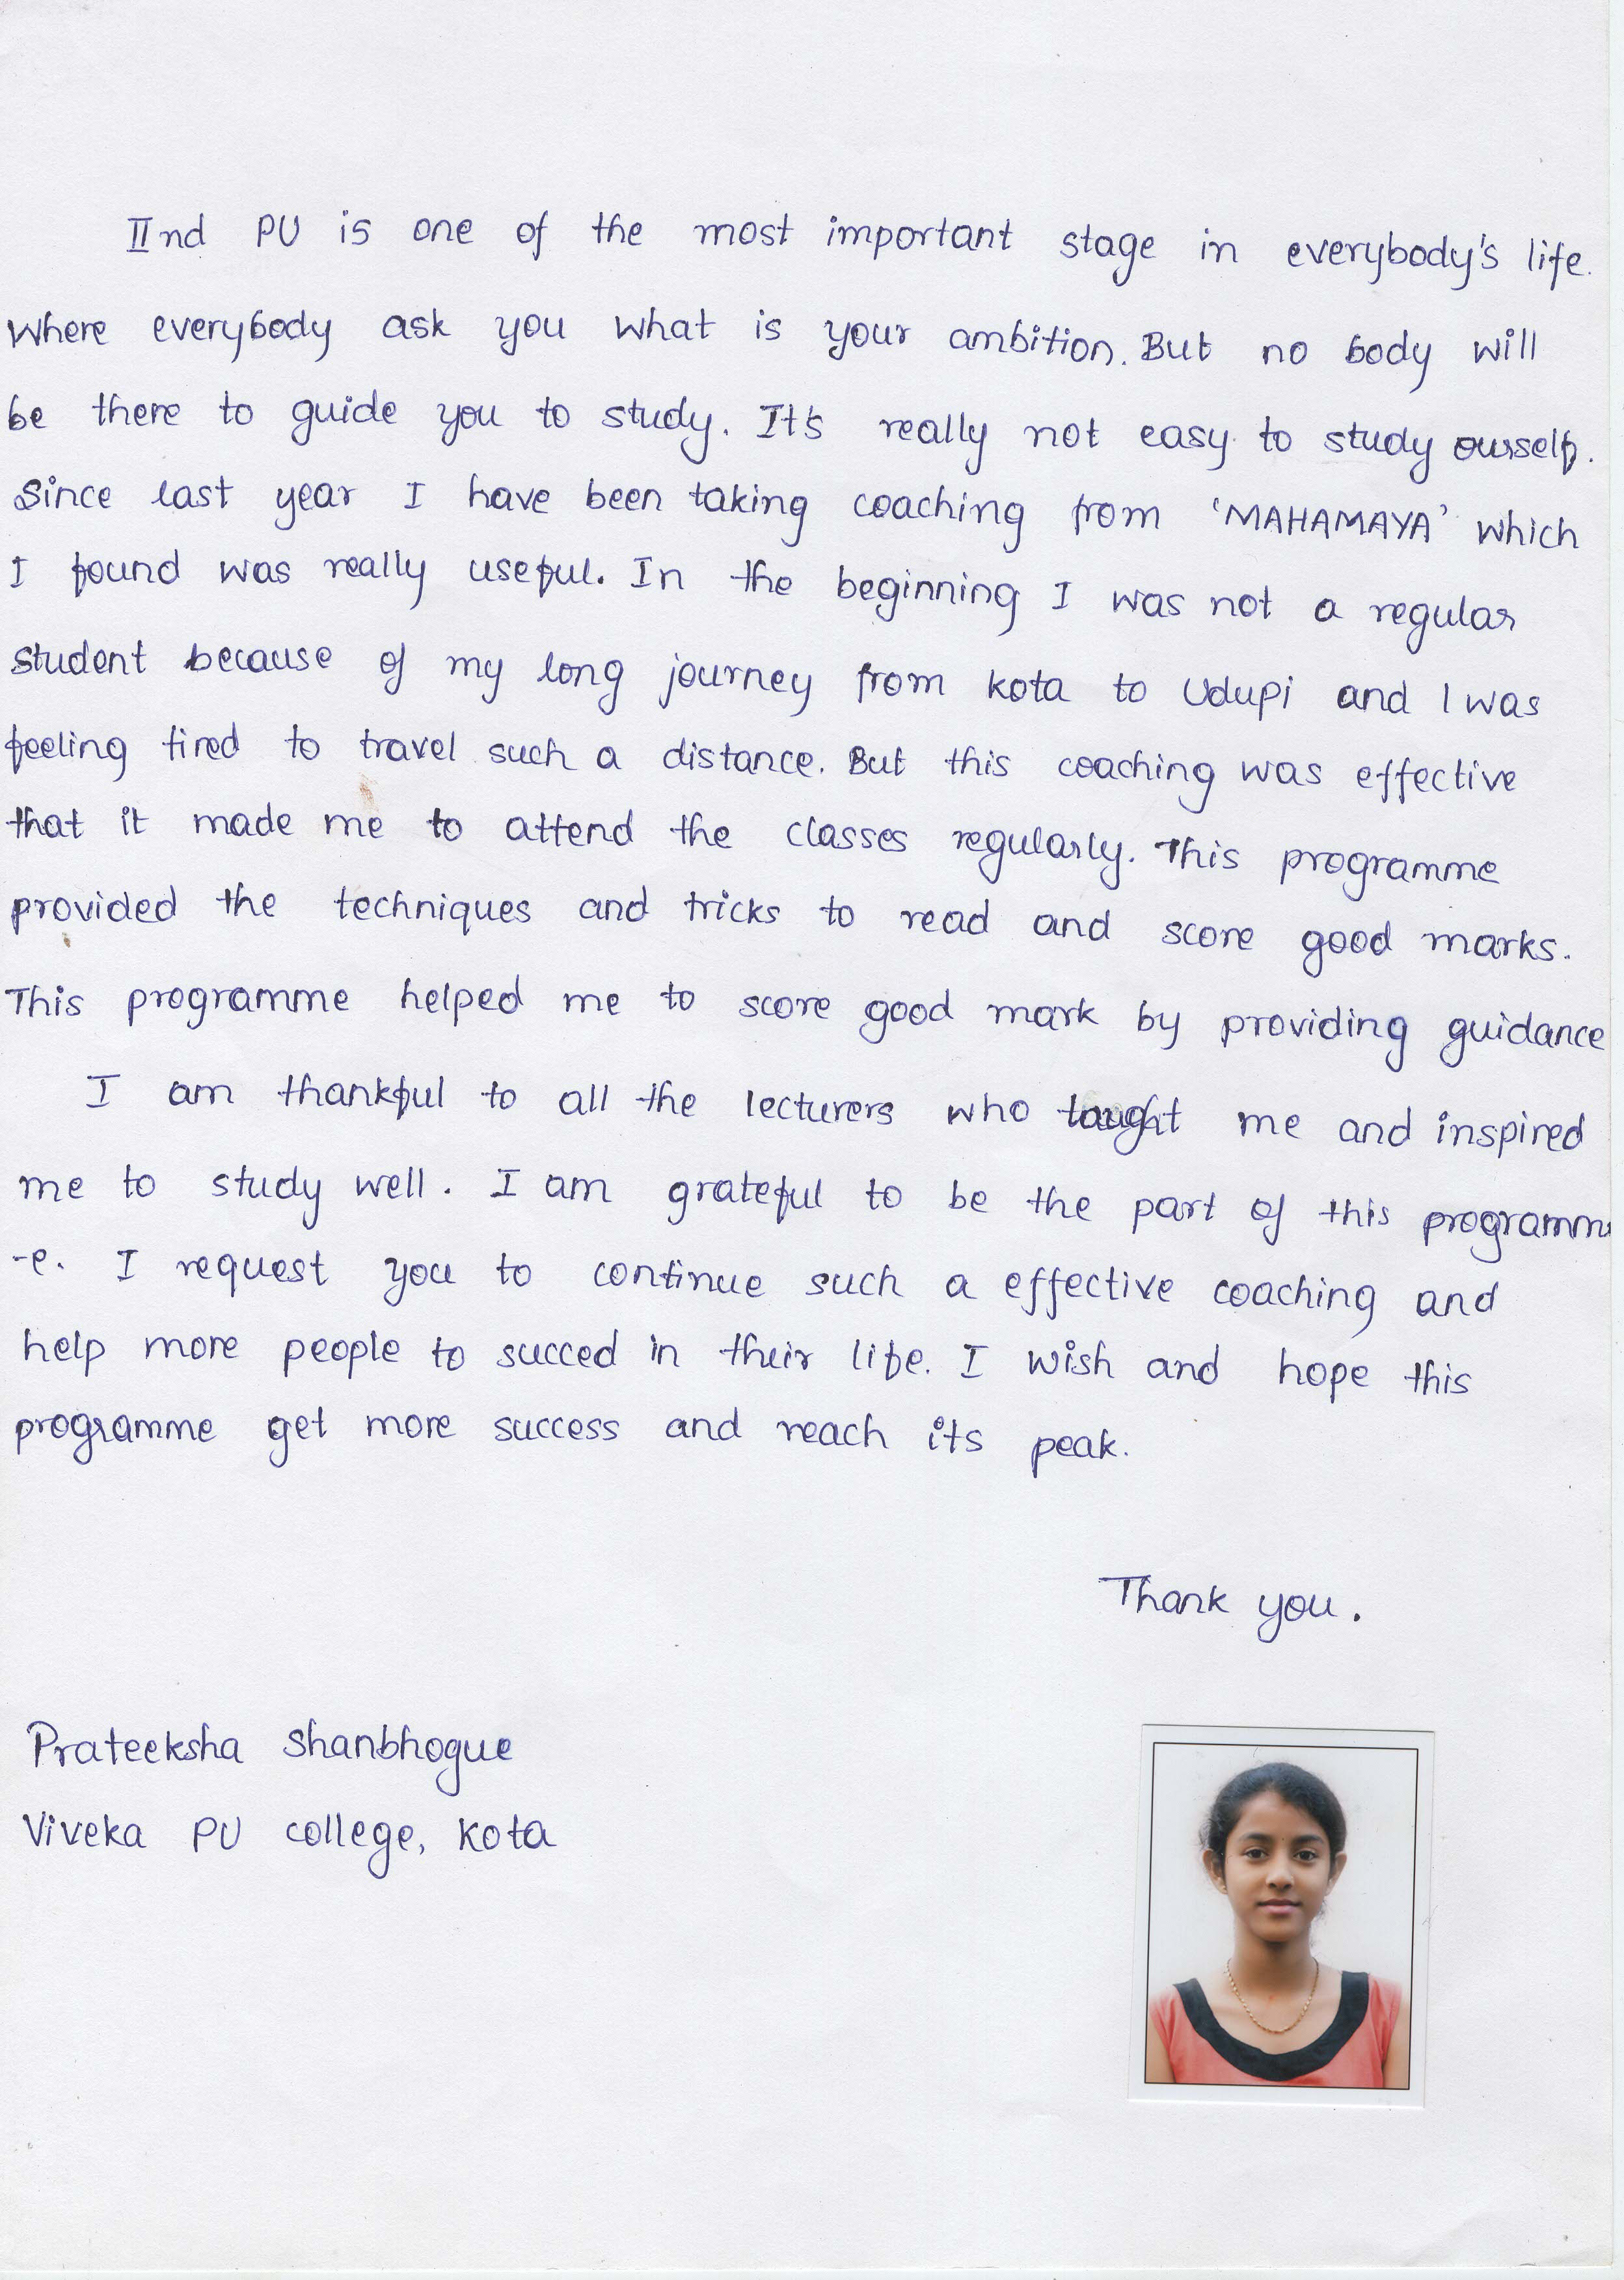 IInd PU is one of the most important stage in everybody's life.
Where everybody ask you what is your ambition. But no body will
be there to guide you to study. It's really not easy to study ourself.
Since last year I have been taking coaching from 'MAHAMAYA' which
I found was really useful. In the beginning I was not a regular
student because of my long journey from kota to Udupi and I was
feeling tired to travel such a distance. But this coaching was effective
that it made me to attend the classes regularly. This programme
provided the techniques and tricks to read and score good marks.
This programme helped me to score good mark by providing guidance
I am thankful to all the lecturers who taught me and inspired
me to study well. I am grateful to be the part of this programm
-e. I request you to continue such a effective coaching and
help more people to succed in their life. I wish and hope this
programme get more success and reach its peak.
Thank you.
Prateeksha Shanbhogue
Viveka PU college, Kota